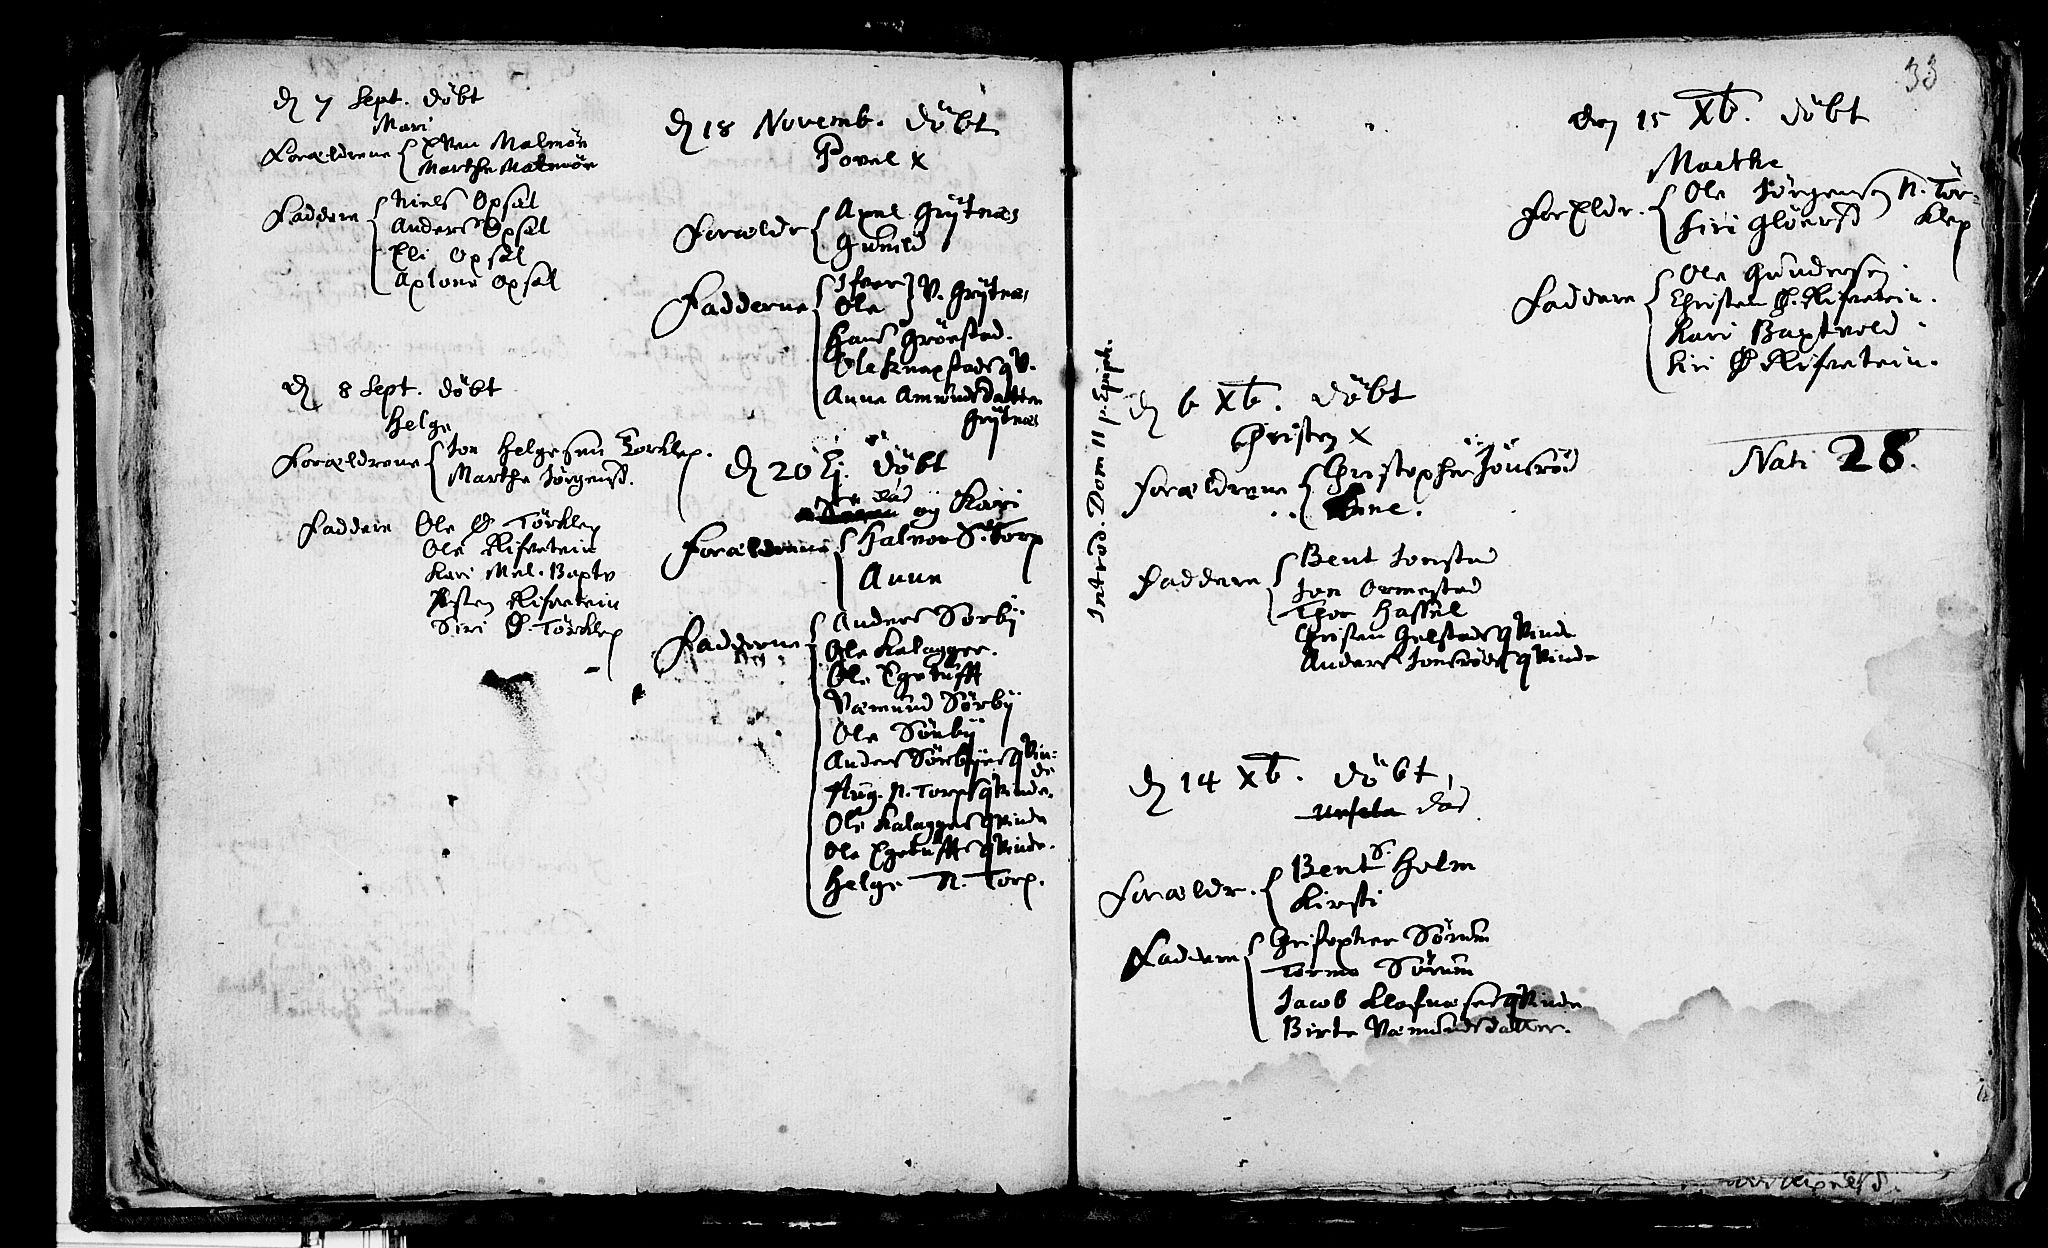 d 7 Sept. döbt
Mari
Forældrene Even Malmön
Marthe Malmön
Faddere Niels Opsal
Anders Opsal
Eli Opsal
Axlone Opsal
d 8 Sept. döbt
Helge
Forældrene Jon Helgesen Torklep.
Marthe Jörgensd.
Faddere Ole Ø Törklep
Ole Rifsetein
Kari Mel. Baptv
Assten Rifsetein
Siri Ø. Törklep
d 18 Novemb. döbt
Povel x
Forældr Axel Grÿtnæs
Gunild
Fadderne Ifver
Ole V. Grÿtnæs
Hans Grönstad.
Ole Knapstads qv.
Anne Amundsdatter
Grÿtnæs
d 20 Ej. döbt
död
og Kari
Forældrene Halvor S. Torp
Anne
Fadderne Anders Sorbÿ
Ole Kalagger.
Ole Egetufft
Væmund Sörbÿ
Ole Sörbÿ
Anders Sörbÿes qvin-
de
Aug. N. Torps qvinde.
Ole Kalaggers qvinde
Ole Egetuffts qvinde.
Helge N. Torp.
33
Introd. Dom II p. Epiph.
d 6 Xb. döbt
Christen x
Forældrene Christopher Jönsröd
Ane.
Faddere Bent Jonstad
Jon Ormestad
Thor Hassel
Christen Gelstads qvinde
Anders Jonsröds qvinde
d 14 Xb. döbt,
död
Forældr. Bent S. Holm
Kirsti
Faddere Christopher Sörum
Tormo Sörum
Jacob Klofnæses qvinde
Birte Væmundsdatter.
den 15 Xb. döbt
Marthe
Forældr. Ole Jörgensen N. Tör-
Siri Glöersd klep
Faddere Ole Gundersen.
Christen Ø. Rifsetein.
Kari Baptvold.
Siri Ø Rifsetein.
Nati 28.